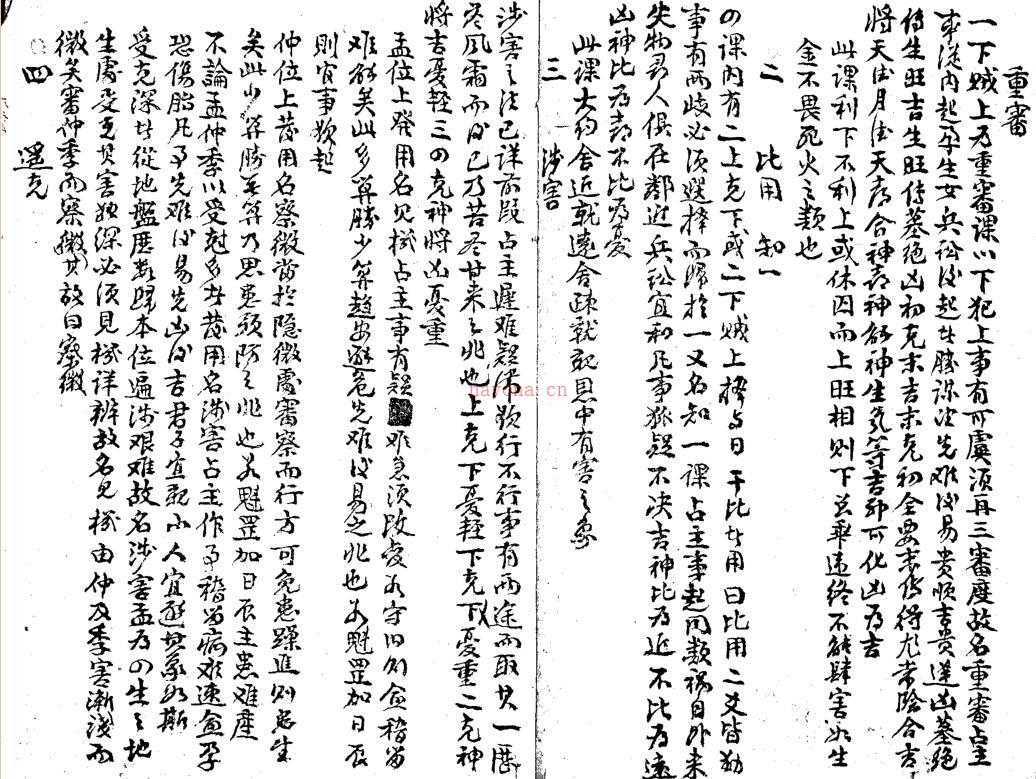 重審
一下贼上为重審課以下犯上事有可虞须再三審度故名重審占主
事従内起孕生女兵訟後起者勝谋望先难後易贵順吉贵逆凶墓绝
传生旺吉生旺传墓绝凶初克末吉末克初全要末传得九常陰合吉
將天德月德天喜合神喜神解神生炁等吉即可化凶为吉
此課利下不利上或休囚而上旺相则下兑乘违终不能肆害如生
金不畏死火之類也
二 比用 知一
四課内有二上克下或二下贼上择与日干比者用曰比用二爻皆动
事有两歧必须选择而归於一又名知一課占主事起同類祸自外来
失物尋人俱在鄰近兵訟宜和凡事狐疑不决吉神比为近不比为遠
凶神比为喜不比为憂
此課大约舍近就遠舍疎就親恩中有害之象
三 涉害
涉害之法已详前段占主遲难疑滞欲行不行事有两途而取其一歷
尽風霜而後已乃苦尽甘来之兆也上克下憂輕下克下憂重二克神
將吉憂輕三四克神將凶憂重
孟位上發用名见機占主事有疑难急须改变若守旧则愈稽留
难解矣此多算勝少算趨安避危先难後易之兆也若魁罡加日辰
则官事欲起
仲位上發用名察微當於隐微處審察而行方可免患躁進则危生
矣此少算勝無算乃思患預防之兆也若魁罡加日辰主患难產
不論孟仲季以受尅多者發用名涉害占主作事稽留病难速愈孕
恐傷胎凡事先难後易先凶後吉君子宜親小人宜遊其象如斯
受克深者從地盤歷数歸本位遍涉艰难故名涉害孟为四生之地
生處受克其害独深必须見機详辨故名见機由仲及季害漸浅而
微矣審仲季而察微(其)故曰察微
四 遥克
nayona.cn